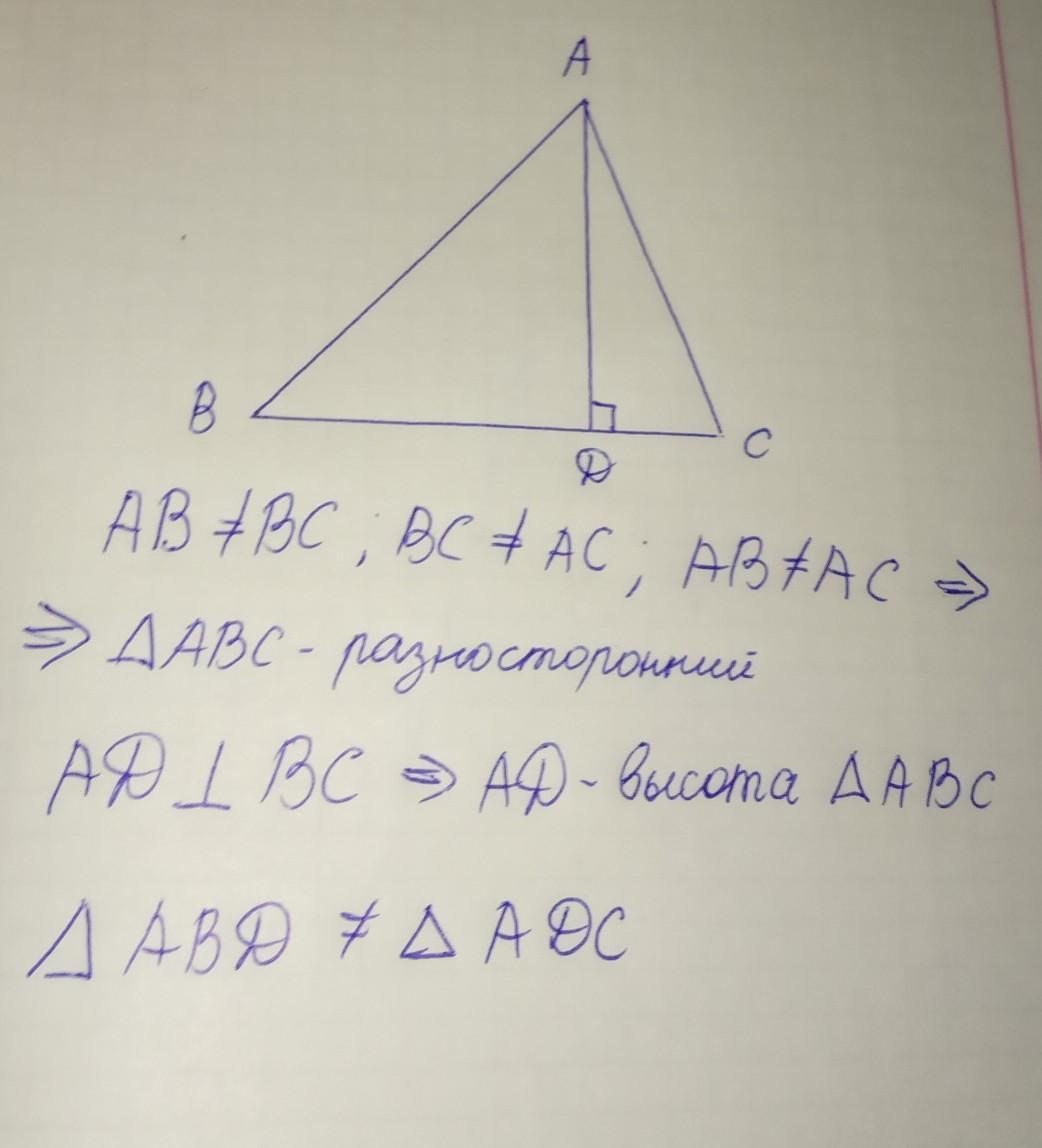 A
B
C
D
AB ≠ BC ; BC ≠ AC ; AB ≠ AC ⇒
⇒ △ABC - разносторонний
AD ⊥ BC ⇒ AD - высота △ABC
△ ABD ≠ △ ADC